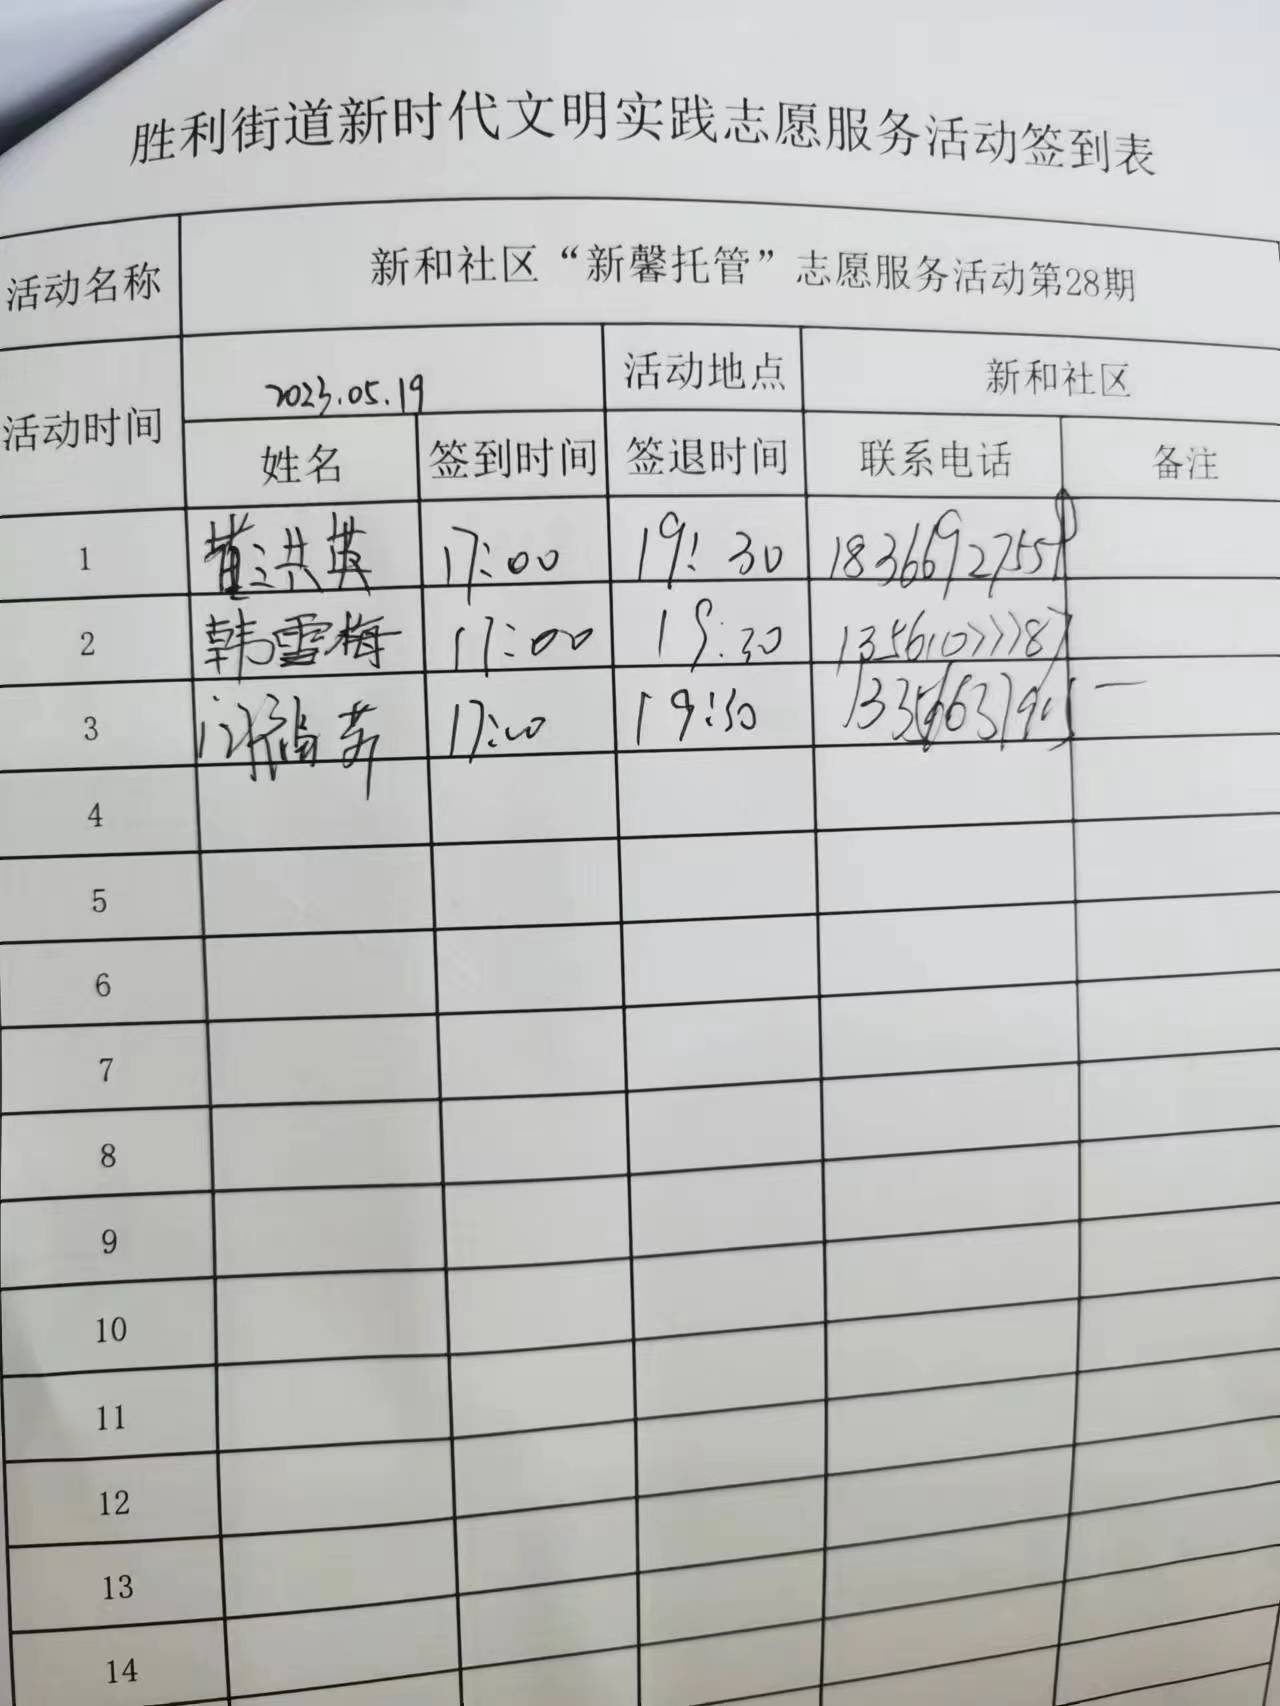 胜利街道新时代文明实践志愿服务活动签到表
活动名称 新和社区“新馨托管”志愿服务活动第28期
活动时间 2023.05.19 活动地点 新和社区
姓名 签到时间 签退时间 联系电话 备注
1 董洪英 17:00 19:30
2 韩雪梅 17:00 19:30
3 19:30
4
5
6
7
8
9
10
11
12
13
14